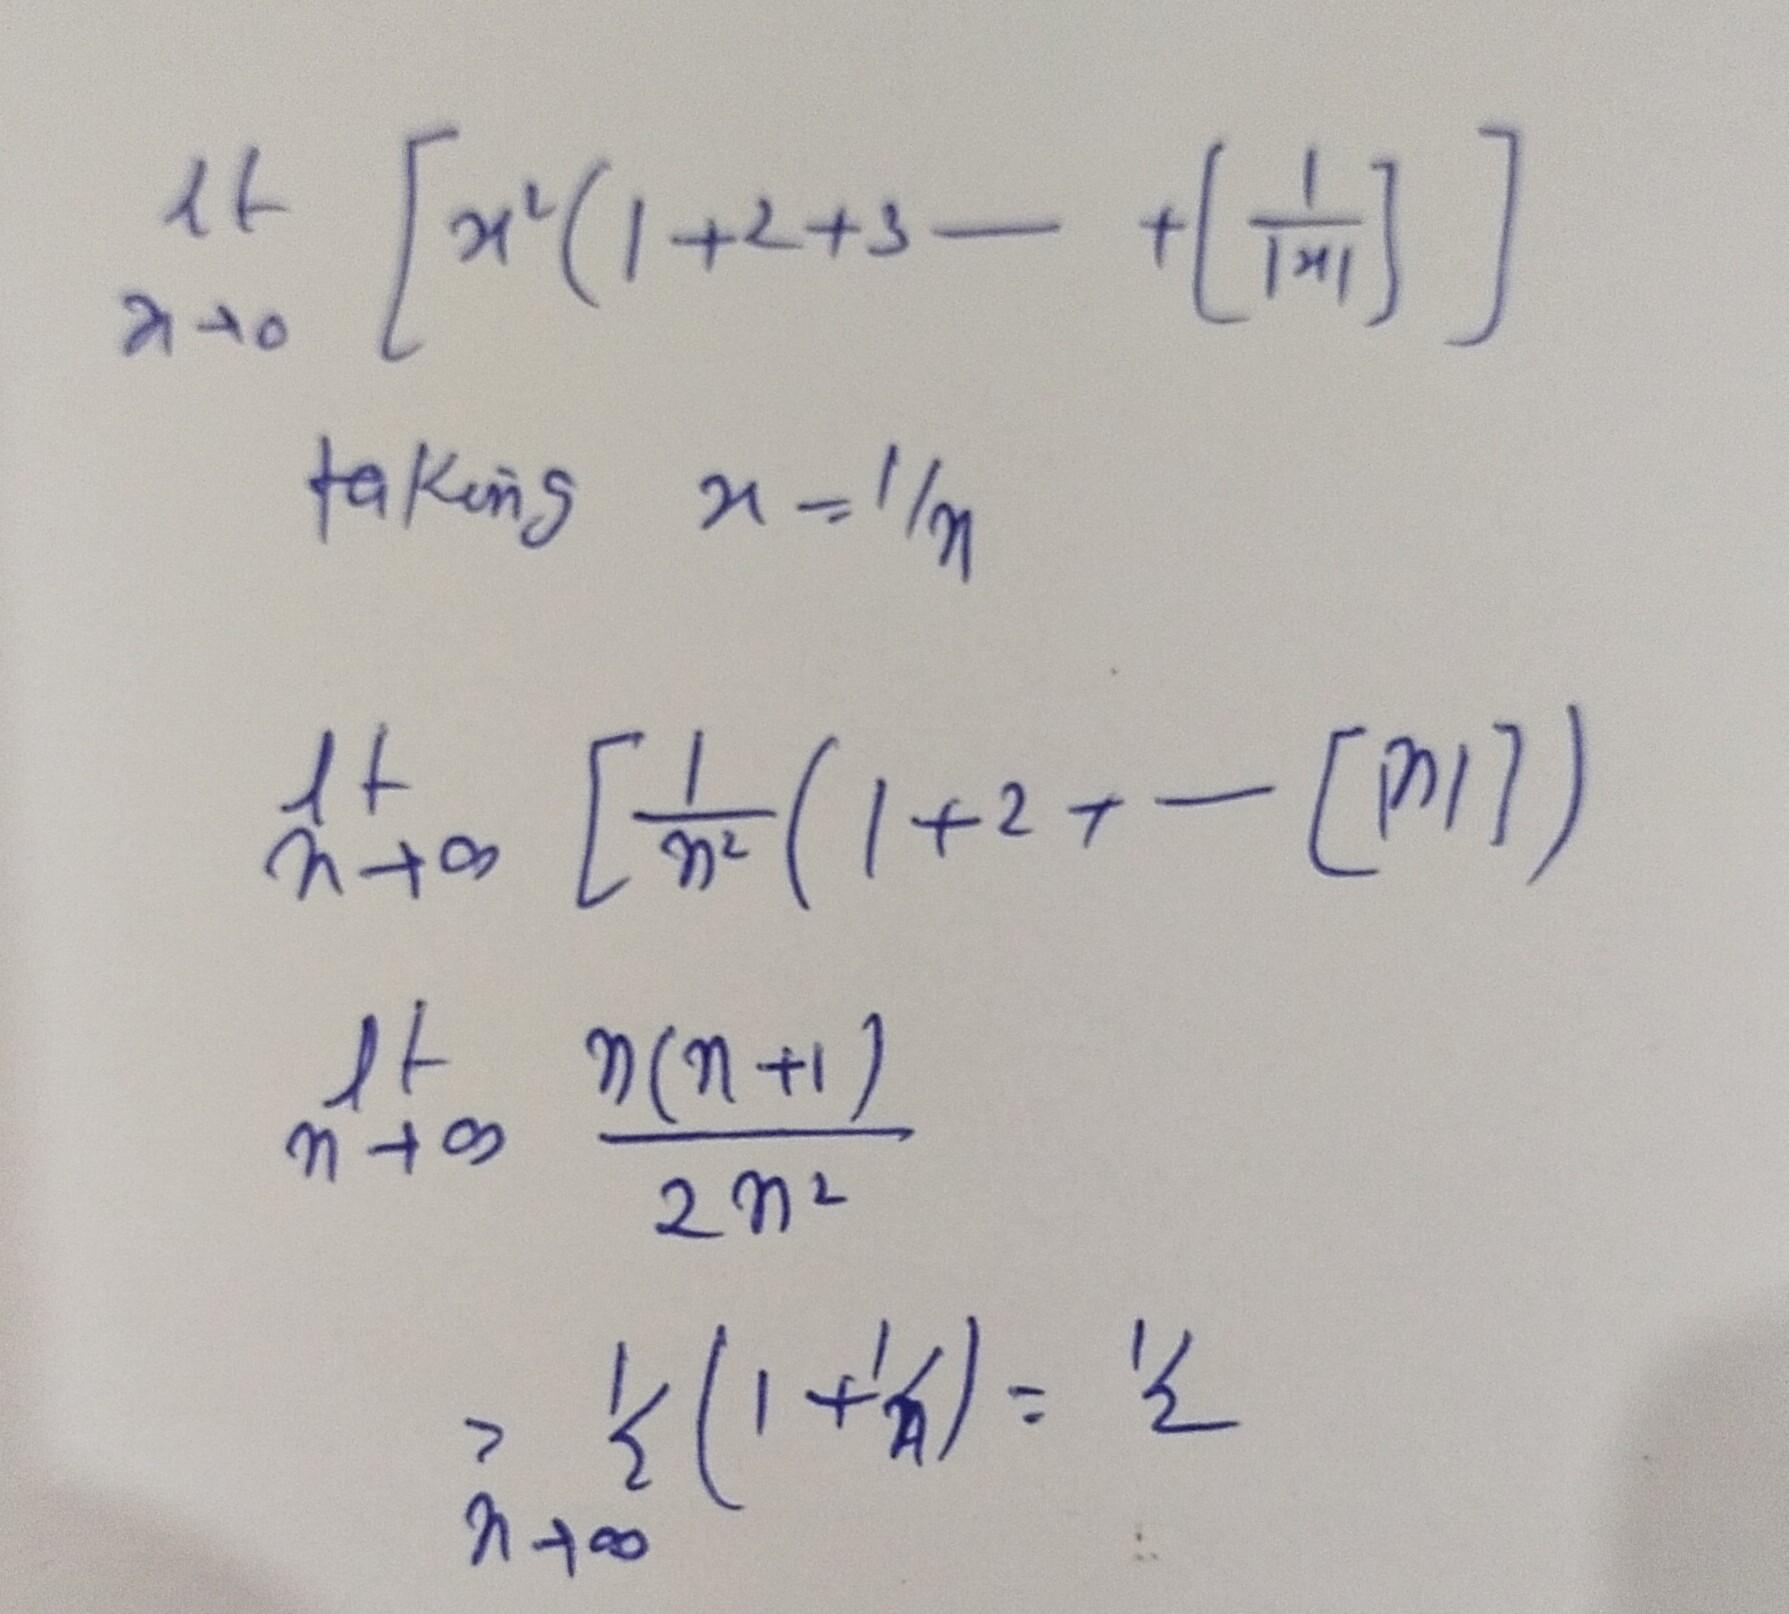 lt x→0 [x²(1+2+3— +[1/|x|]]
taking x = 1/n
lt n→∞ [1/n²(1+2+—[|n|])
lt n→∞ n(n+1)/2n²
> n→∞ 1/2(1+1/n) = 1/2